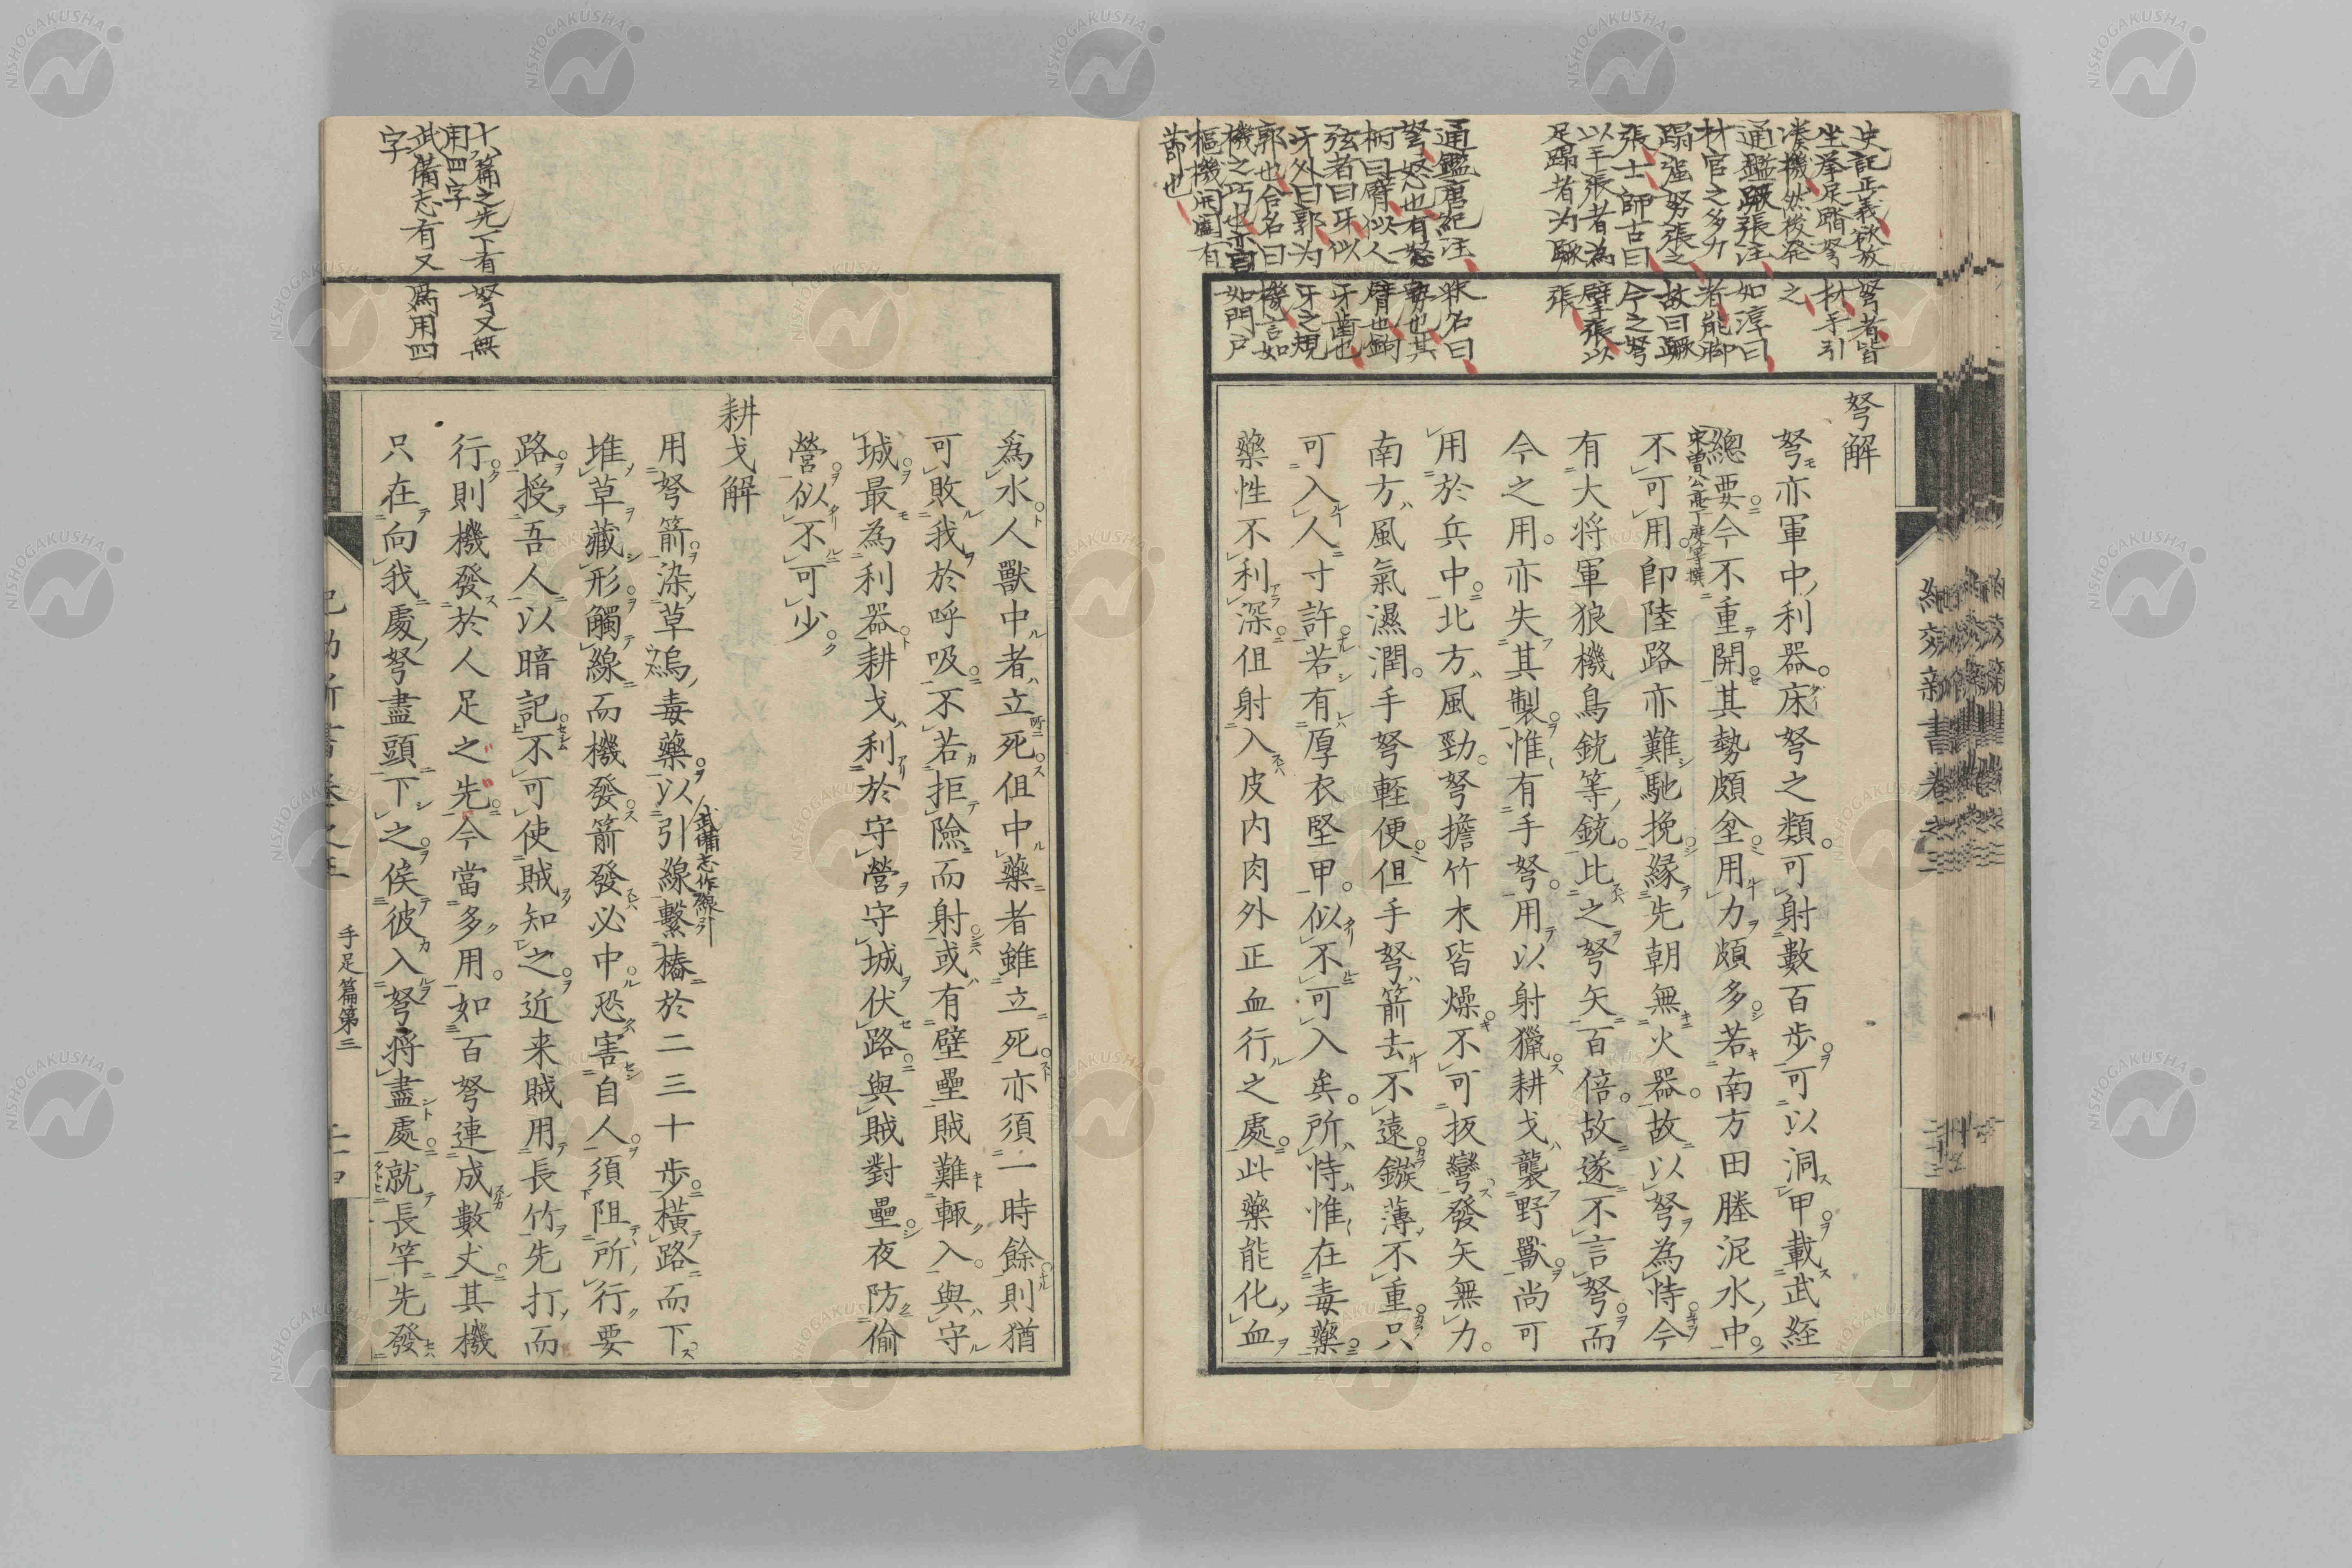 弩解
弩亦軍中利器床弩之類可射數百步可以洞甲載武経
總要今不重開其勢頗坌用力頗多若南方田塍泥水中
宋曽公亮丁度等撰
不可用卽陸路亦難馳挽緣先朝無火器故以弩為恃今
有大将軍狼機鳥銃等銃比之弩矢百倍故遂不言弩而
今之用亦失其製惟有手弩用以射獵耕戈襲野獸尚可
用於兵中北方風勁弩擔竹木皆燥不可扳彎發矢無力
南方風氣濕潤手弩軽便但手弩箭去不遠鏃薄不重只
可入人寸許若有厚衣堅甲似不可入矣所恃惟在毒藥
藥性不利深但射入皮内肉外正血行之處此藥能化血
史記正義欲放弩者皆
坐舉足踏弩材手引
湊機然後発之
通鑑蹶張注如淳曰
材官之多力者能脚
蹋強弩張之故曰蹶
張士師古曰今之弩
以手張者為擘張以
足蹋者为蹶張
通鑑唐紀注釈名曰
弩怒也有怒勢也其
柄曰臂似人臂也鉤
弦者曰牙似牙齒也
牙外曰郭为牙之規
郭也合名曰機言如
機之巧也亦言如門戸
樞機開闔有
節也
為水人獸中者立死但中藥者雖立死亦須一時餘則猶
可敗我於呼吸不若拒險而射或有壁壘賊難輒入與守
城最為利器耕戈利於守營守城伏路與賊對壘夜防偷
營似不可少
耕戈解
用弩箭染草烏毒藥以引線繫樁於二三十步橫路而下
武備志作線引
堆草藏形觸線而機發箭發必中恐害自人須阻所行要
路授吾人以暗記不可使賊知之近来賊用長竹先打而
行則機發於人足之先今當多用如百弩連成數丈其機
只在向我處弩盡頭下之俟彼入弩将盡處就長竿先發
十八篇之先下有弩又無
用四字
武備志有又為用四
字
紀効新書卷之三
手足篇第三